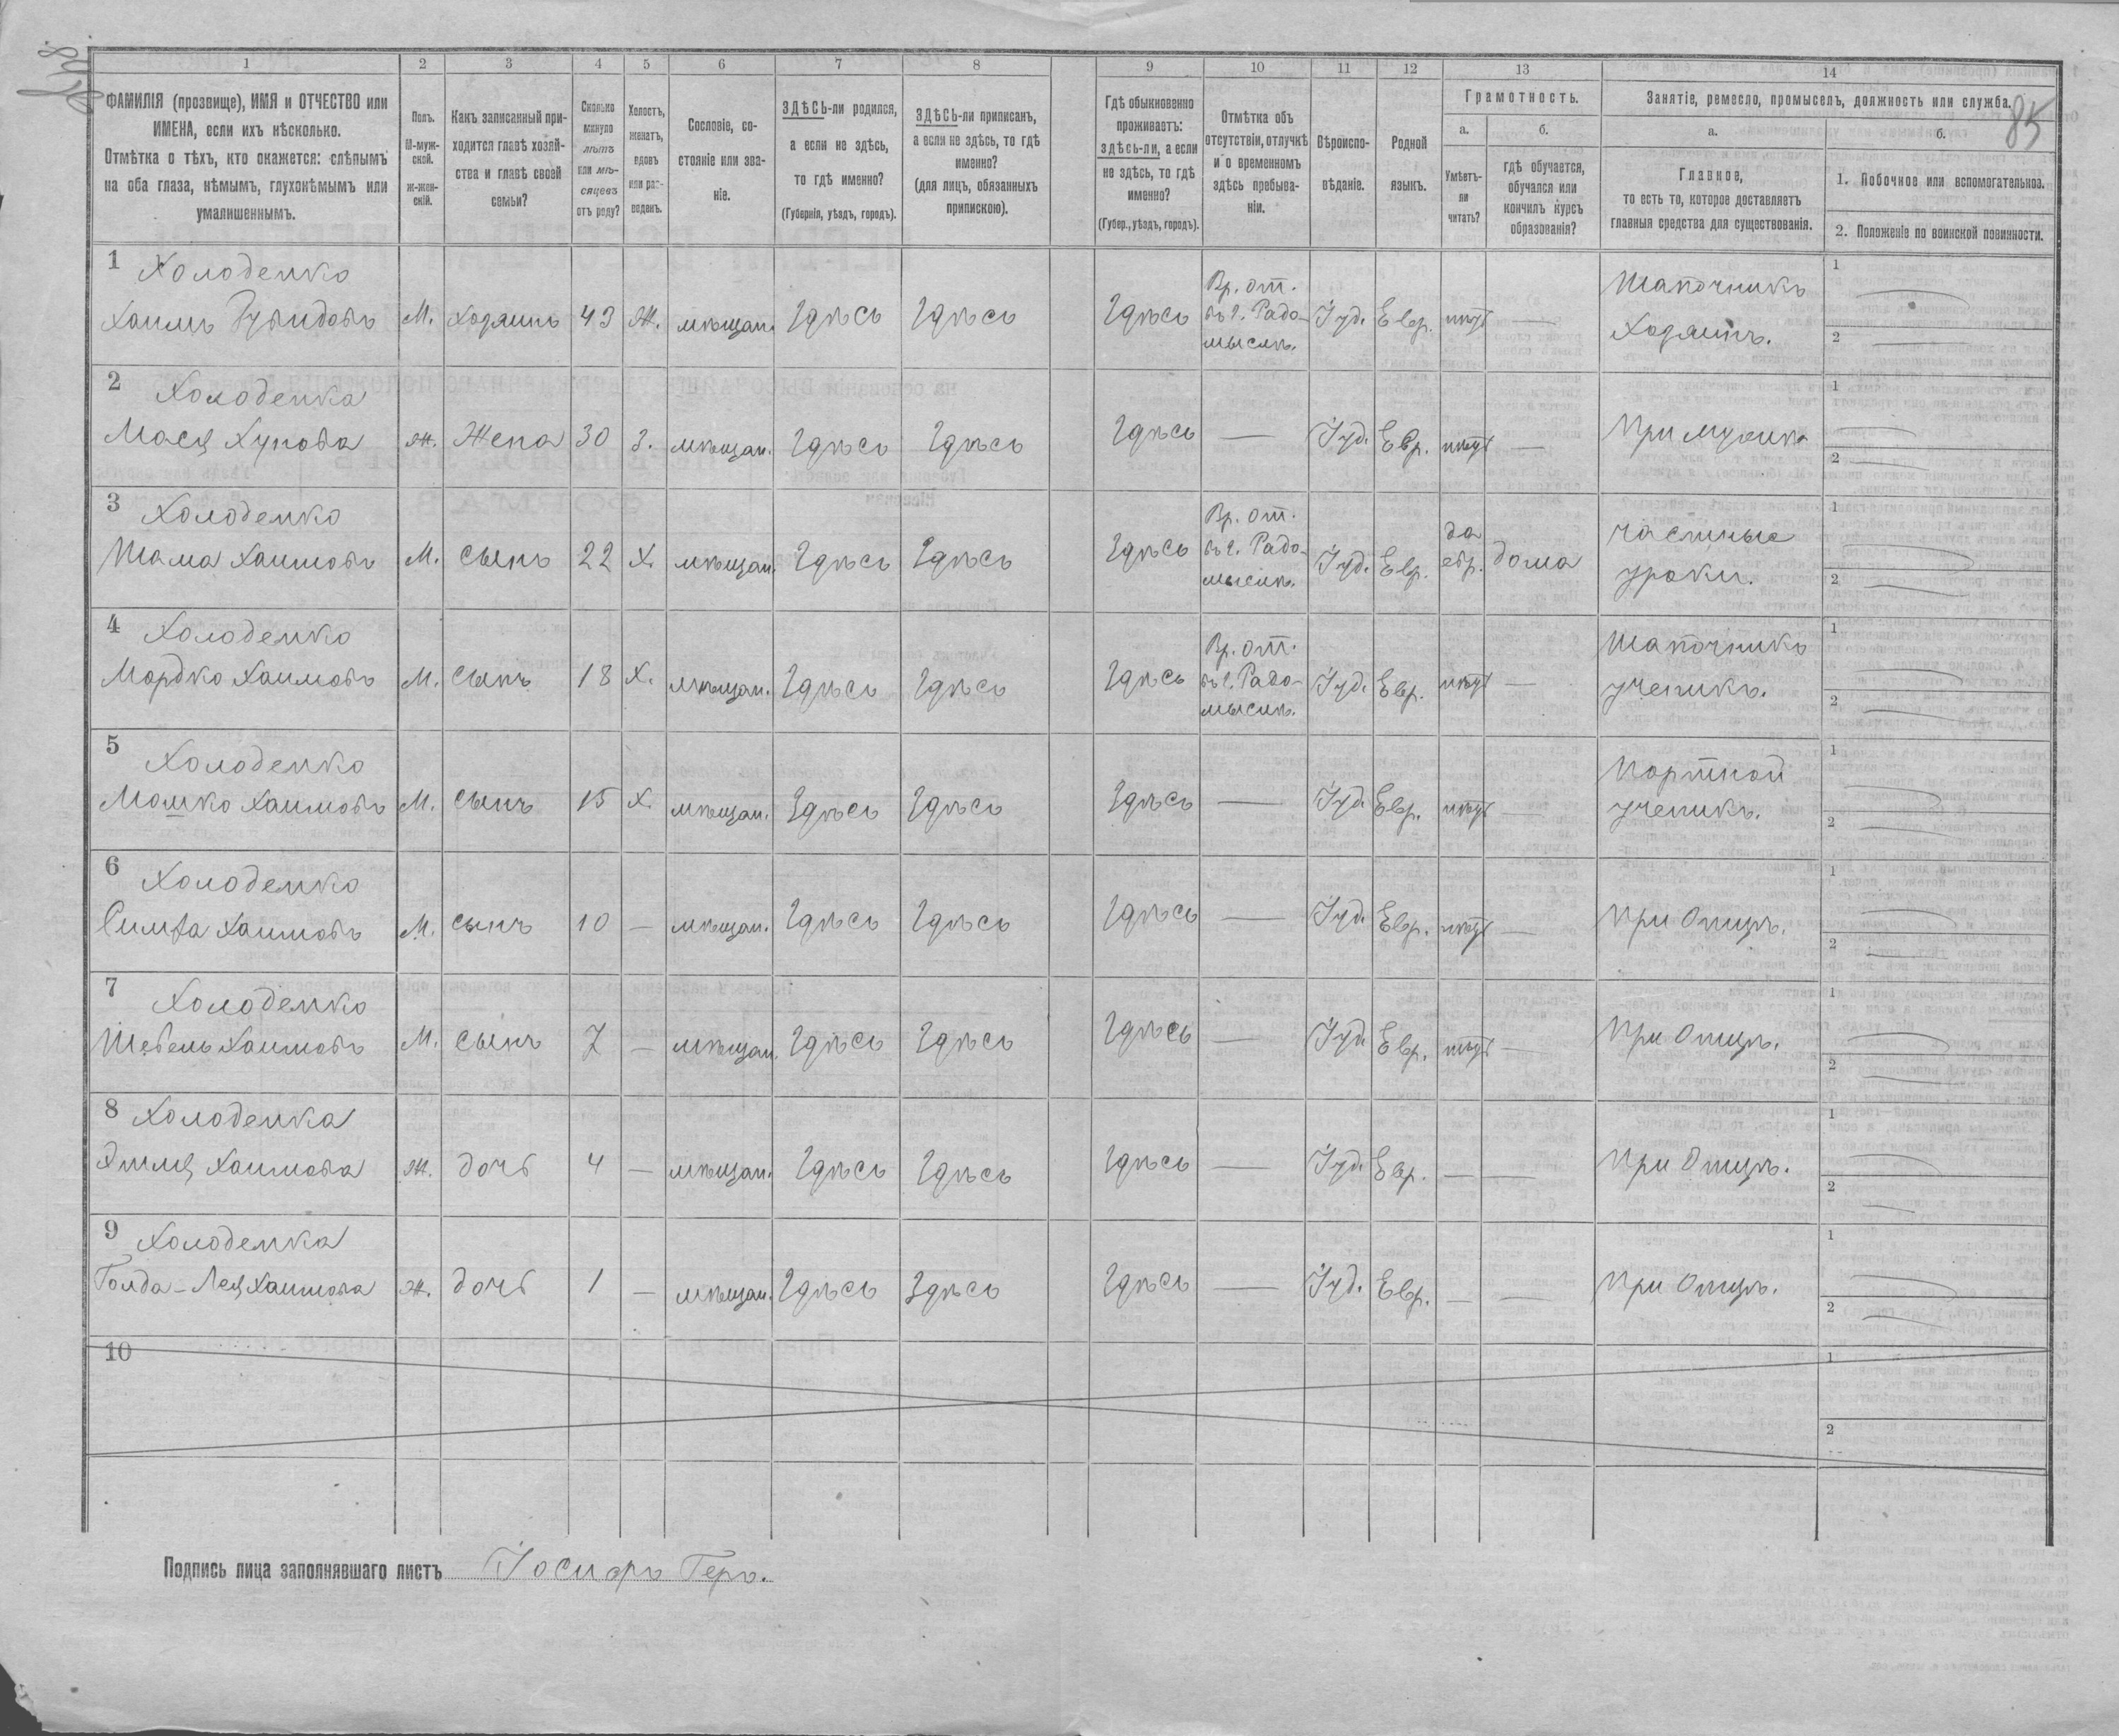 85
1 2 3 4 5 6 7 8 9 10 11 12 13 14
ФАМИЛІЯ (прозвище), ИМЯ и ОТЧЕСТВО или
ИМЕНА, если ихъ нѣсколько.
Отмѣтка о тѣхъ, кто окажется: слѣпымъ
на оба глаза, нѣмымъ, глухонѣмымъ или
умалишеннымъ.
Полъ.
М-муж-
ской.
Ж-жен-
скій.
Какъ записанный при-
ходится главѣ хозяй-
ства и главѣ своей
семьи?
Сколько
минуло
лѣтъ
или мѣ-
сяцевъ
отъ роду?
Холостъ,
женатъ,
вдовъ
или раз-
веденъ.
Сословіе, со-
стояніе или зва-
ніе.
ЗДѢСЬ-ли родился,
а если не здѣсь,
то гдѣ именно?
(Губернія, уѣздъ, городъ).
ЗДѢСЬ-ли приписанъ,
а если не здѣсь, то гдѣ
именно?
(для лицъ, обязанныхъ
припискою).
Гдѣ обыкновенно
проживаетъ:
здѣсь-ли, а если
не здѣсь, то гдѣ
именно?
(Губер., уѣздъ, городъ).
Отмѣтка объ
отсутствіи, отлучкѣ
и о временномъ
здѣсь пребыва-
ніи.
Вѣроиспо-
вѣданіе.
Родной
языкъ.
Грамотность.
а.
Умѣетъ-
ли
читать?
б.
гдѣ обучается,
обучался или
кончилъ курсъ
образованія?
Занятіе, ремесло, промыселъ, должность или служба.
а.
Главное,
то есть то, которое доставляетъ
главныя средства для существованія.
б.
1. Побочное или вспомогательное.
2. Положеніе по воинской повинности.
1 Холоденко Вр. от. Шапочникъ 1
Хаимъ М. Хозяинъ 43 Ж. мѣщан. Здѣсь Здѣсь Здѣсь въ г. Радо- Іуд. Евр. нѣтъ —
мыслѣ. Хозяинъ. 2
2 Холоденка 1
Мася Ж. Жена 30 З. мѣщан. Здѣсь Здѣсь Здѣсь — Іуд. Евр. нѣтъ — При мужѣ 2
3 Холоденко Вр. от. да частные 1
Шама Хаимовъ М. сынъ 22 Х. мѣщан. Здѣсь Здѣсь Здѣсь въ г. Радо- Іуд. Евр. евр. дома
мыслѣ. уроки. 2
4 Холоденко Вр. от. Шапочникъ 1
Мордко Хаимовъ М. сынъ 18 Х. мѣщан. Здѣсь Здѣсь Здѣсь въ г. Радо- Іуд. Евр. нѣтъ —
мыслѣ. ученикъ. 2
5 Холоденко Портной 1
Мошко Хаимовъ М. сынъ 15 Х. мѣщан. Здѣсь Здѣсь Здѣсь — Іуд. Евр. нѣтъ — ученикъ. 2
6 Холоденко 1
Симха Хаимовъ М. сынъ 10 — мѣщан. Здѣсь Здѣсь Здѣсь — Іуд. Евр. нѣтъ — При Отцѣ. 2
7 Холоденко 1
Хаимовъ М. сынъ 7 — мѣщан. Здѣсь Здѣсь Здѣсь — Іуд. Евр. нѣтъ — При Отцѣ. 2
8 Холоденка 1
Хаимова Ж. дочь 4 — мѣщан. Здѣсь Здѣсь Здѣсь — Іуд. Евр. — — При Отцѣ. 2
9 Холоденка 1
Голда-Лея Хаимова Ж. дочь 1 — мѣщан. Здѣсь Здѣсь Здѣсь — Іуд. Евр. — — При Отцѣ. 2
10 1
2
Подпись лица заполнявшаго листъ Іосифъ Геръ.